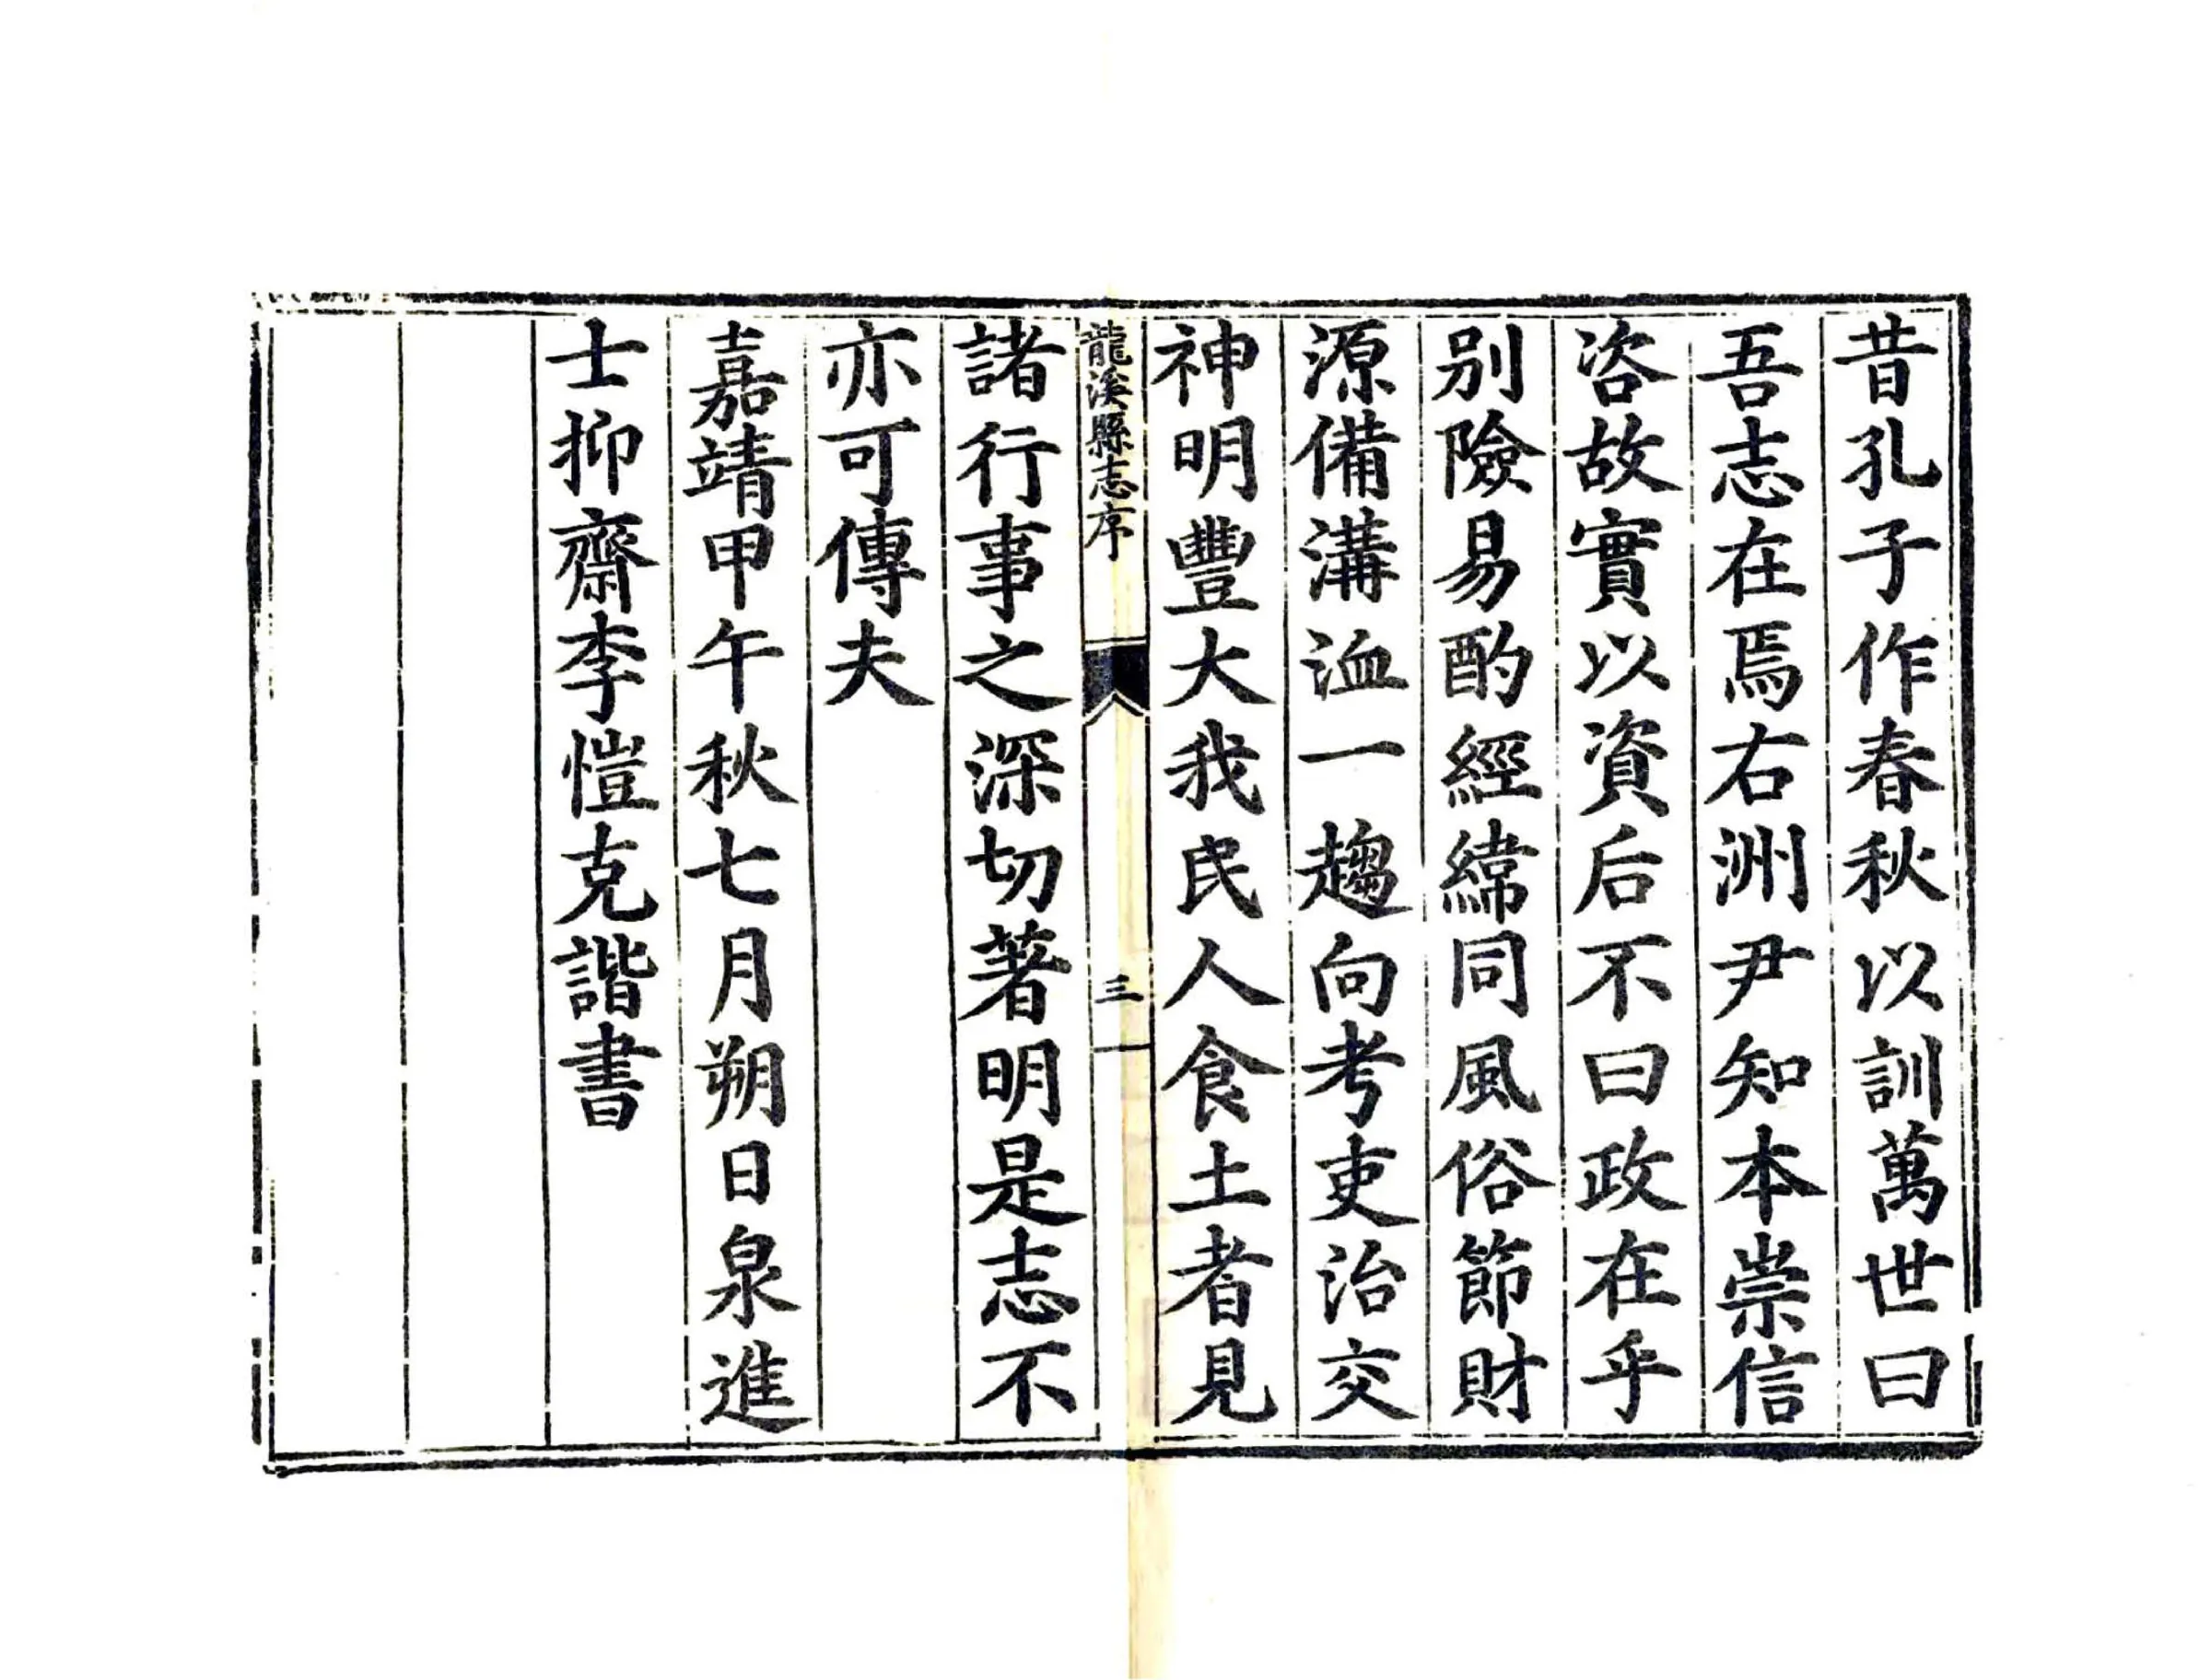 昔孔子作春秋以訓萬世曰
吾志在焉右洲尹知本崇信
咨故實以資后不曰政在乎
别險易酌經緯同風俗節財
源備溝洫一趨向考吏治交
神明豐大我民人食土者見
龍溪縣志序
三
諸行事之深切著明是志不
亦可傳夫
嘉靖甲午秋七月朔日泉進
士抑齋李愷克諧書